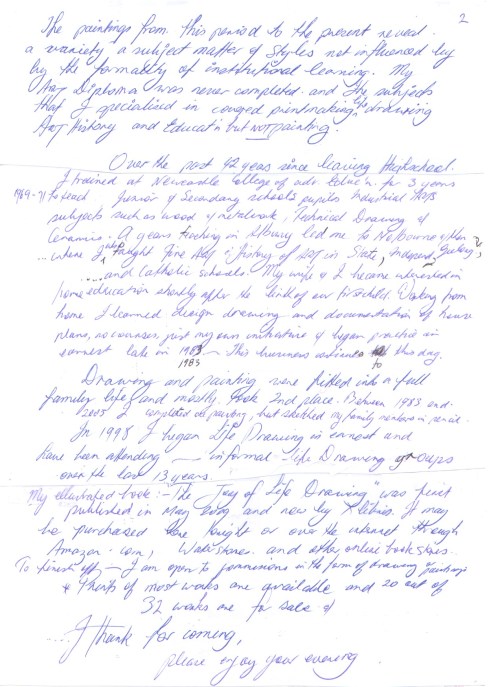 2
The paintings from this period to the present reveal
a variety a subject matter of styles not influenced by
by the formality of institutional learning. My
Art Diploma was never completed and the subjects
that I specialised in covered printmaking, the drawing
Art History and Educat'n but not painting.
Over the past 42 years since leaving Highschool.
I trained at Newcastle College of adv. Educ'n. for 3 years
1969-71 to teach, Junior & Secondary schools pupils Industrial Arts
subjects such as wood & metalwork, Technical Drawing &
Ceramics. A years teaching in Albury led me to Melbourne after
... where I taught Fine Art & History of Art in State, Independ.
.... and Catholic schools. My wife & I became interested in
home education shortly after the birth of our first child. Working from
home I learned design drawing and documentation of house
plans, no courses, just my own initiative & began practice in
earnest late in 1983 — This business continues to this day.
1983
Drawing and painting were fitted into a full
family life and mostly took 2nd place. Between 1983 and
2005 I completed painting, but sketched my family members in pencil.
In 1998 I began Life Drawing in earnest and
have been attending — informal — Life Drawing groups
over the last 13 years.
My illustrated book :- The "Joy of Life Drawing" was first
published in May 2009 and now by Xlibris. It may
be purchased here tonight or over the internet through
Amazon.com, Waterstones and other online book stores.
To finish off — I am open to commissions in the form of drawing & paintings
& Prints of most works are available and 20 out of
32 works are for sale
... I thank for coming,
please enjoy your evening